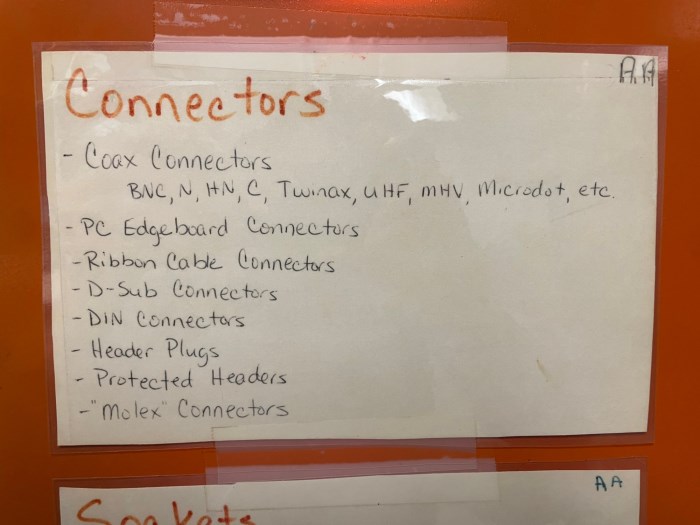 A.A
Connectors
- Coax Connectors
BNC, N, HN, C, Twinax, UHF, MHV, Microdot, etc.
- PC Edgeboard Connectors
- Ribbon Cable Connectors
- D-Sub Connectors
- DIN Connectors
- Header Plugs
- Protected Headers
- "Molex" Connectors
AA
Sockets